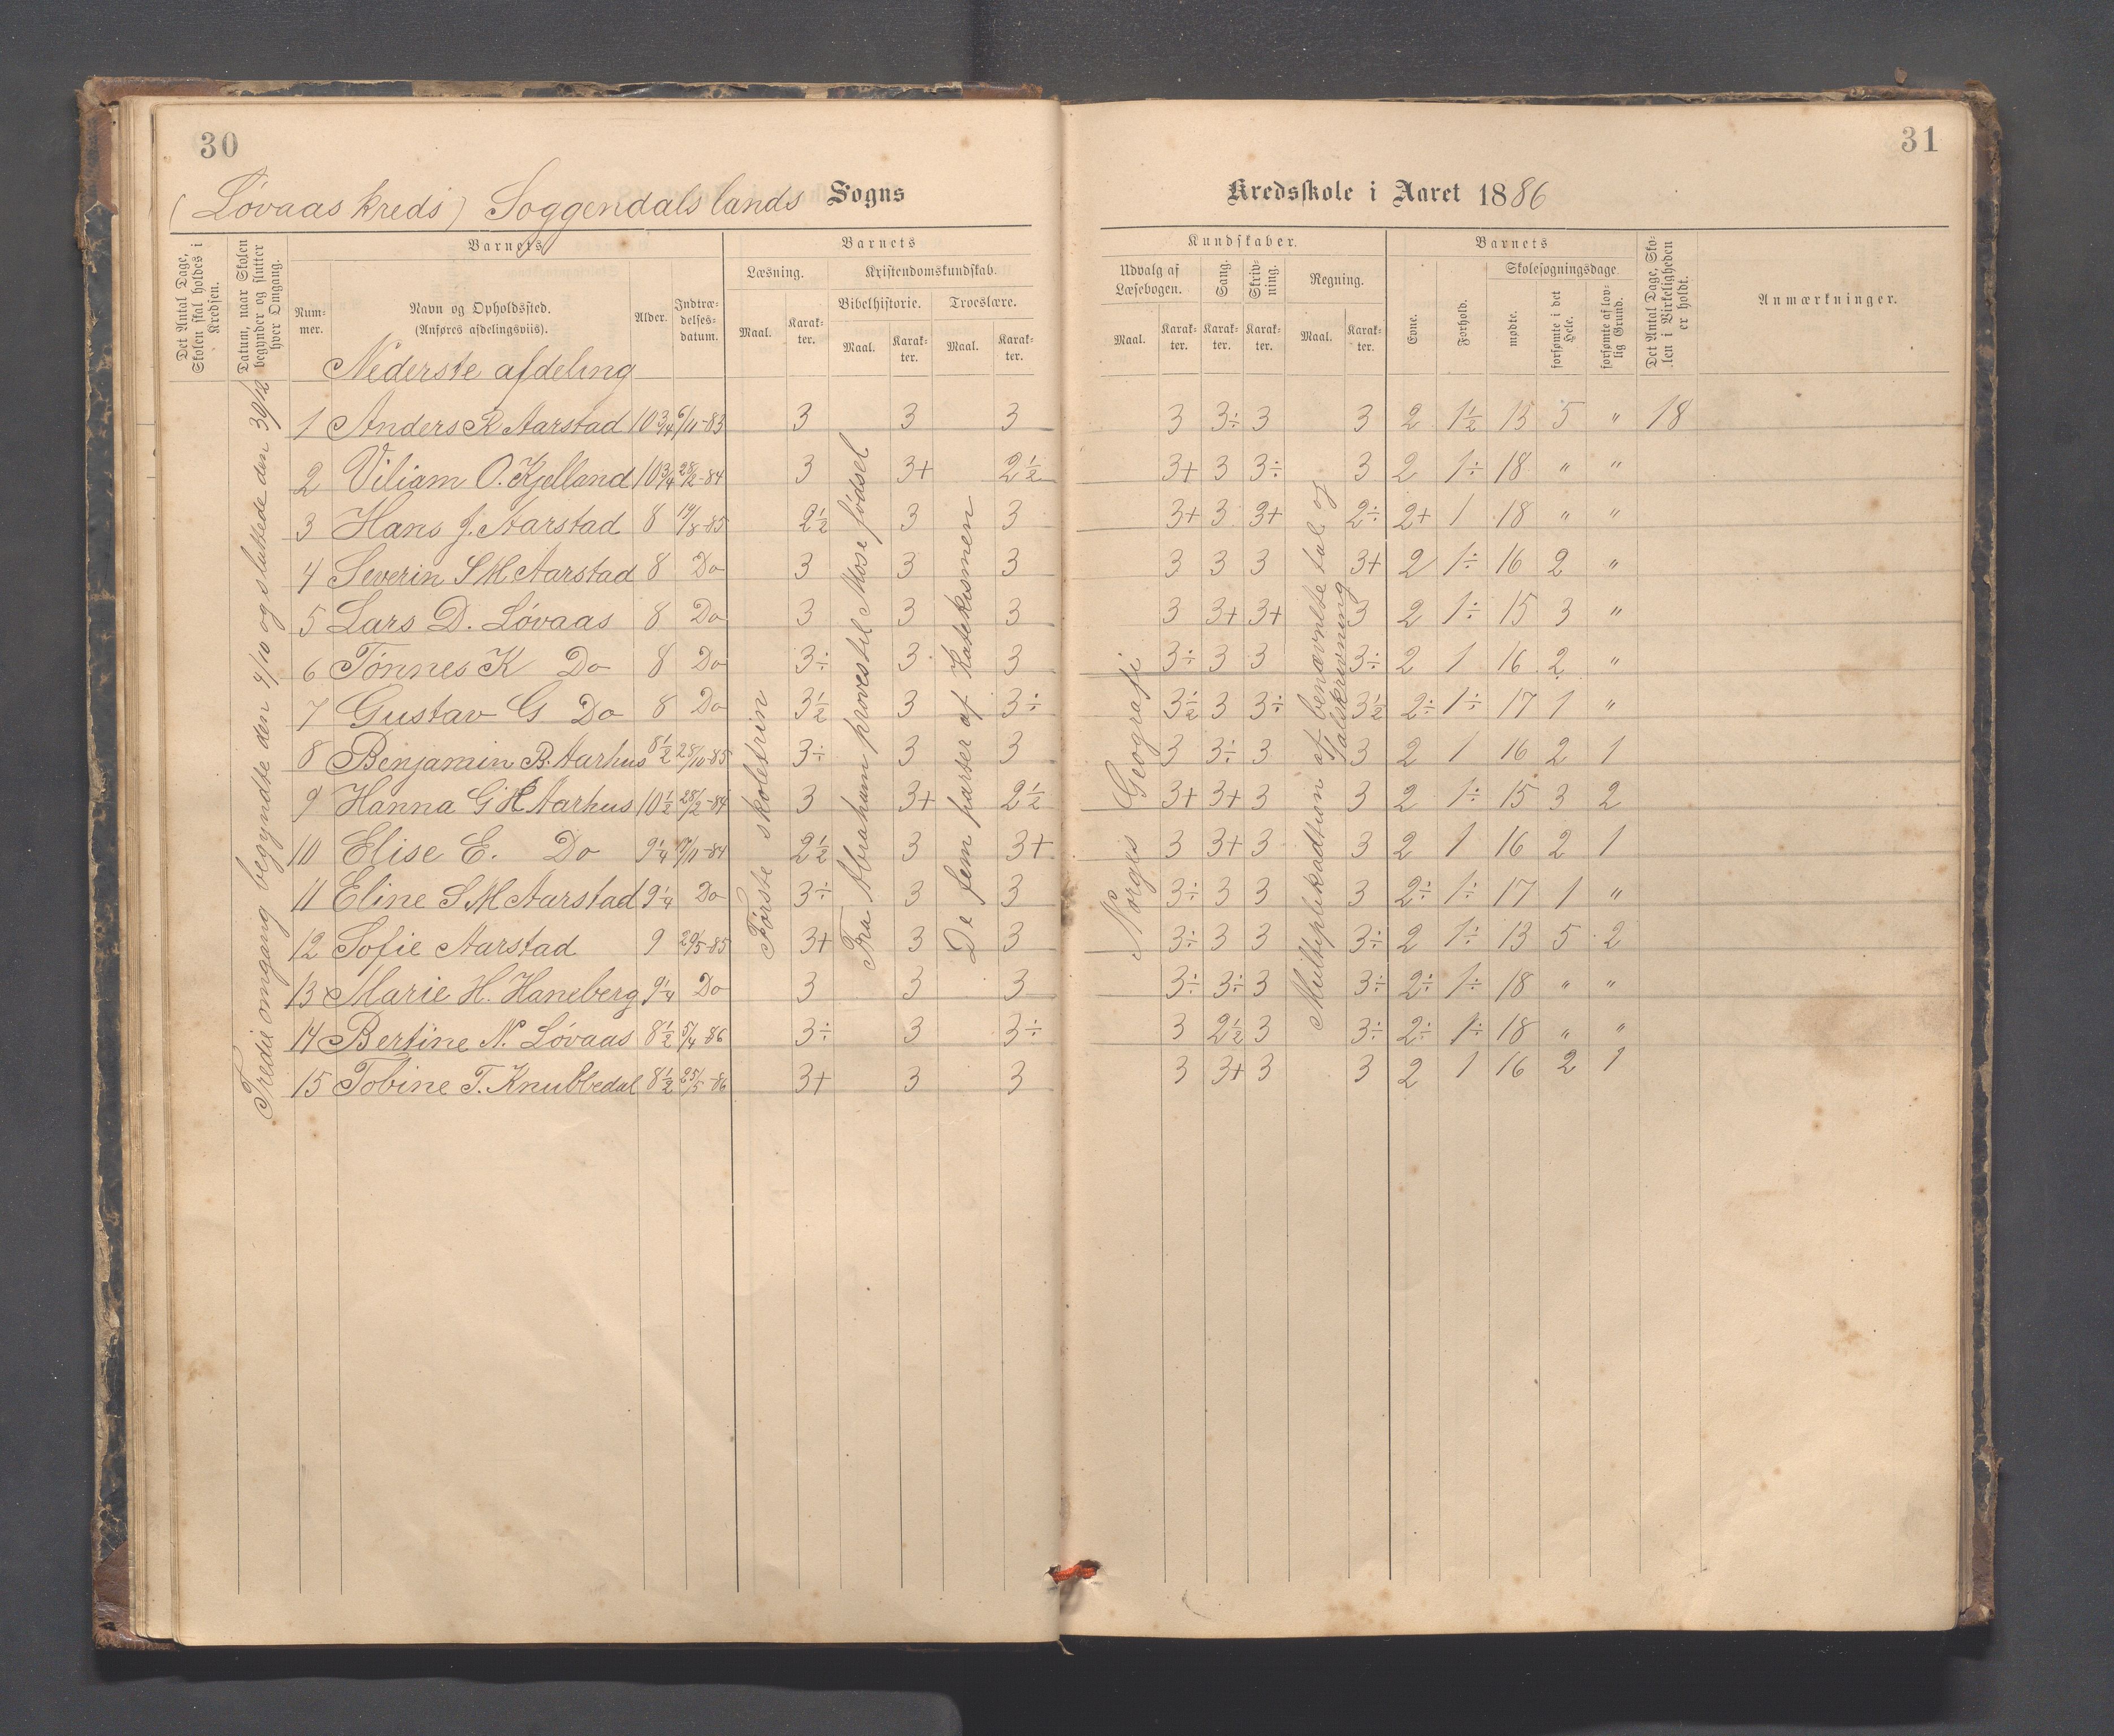 30
(Løvaas kreds) Soggendals lands Sogns
Det Antal Dage, Skolen skal holdes i Kredsen.
Datum, naar Skolen begynder og slutter hver Omgang.
Barnets
Nummer.
Navn og Opholdssted.
(Anføres afdelingsviis).
Alder.
Indtrædelsesdatum.
Barnets
Læsning.
Maal.
Karakter.
Kristendomskundskab.
Bibelhistorie.
Maal.
Karakter.
Troeslære.
Maal.
Karakter.
Tredie omgang begyndte den 4/10 og sluttede den 30/12
Nederste afdeling
1 Anders R Aarstad 10 3/4 6/11-83 3 3 3
2 Viliam O. Kjelland 10 3/4 28/2-84 3 3+ 2 1/2
3 Hans J. Aarstad 8 19/8-85 2 1/2 3 3
4 Severin S M Aarstad 8 Do 3 3 3
5 Lars D. Løvaas 8 Do 3 3 3
6 Tønnes K Do 8 Do 3÷ 3 3
7 Gustav G Do 8 Do 3 1/2 3 3÷
8 Benjamin B. Aarhus 8 1/2 28/10-85 3÷ 3 3
9 Hanna G H Aarhus 10 1/2 28/2-84 3 3+ 2 1/2
10 Elise E. Do 9 1/4 17/11-84 2 1/2 3 3+
11 Eline S M Aarstad 9 1/4 Do 3÷ 3 3
12 Sofie Aarstad 9 29/5-85 3+ 3 3
13 Marie H. Haneberg 9 1/4 Do 3 3 3
14 Bertine N. Løvaas 8 1/2 5/4-86 3÷ 3 3÷
15 Tobine T. Knubbedal 8 1/2 25/5-86 3+ 3 3
Første skoletrin
Fra Abraham proves til Mose fødsel
De fem parter af Katekismen
31
Kredsskole i Aaret 1886
Kundskaber.
Udvalg af Læsebogen.
Maal.
Karakter.
Sang.
Karakter.
Skrivning.
Karakter.
Regning.
Maal.
Karakter.
Barnets
Evne.
Forhold.
Skolesøgningsdage.
mødte.
forsømte i det Hele.
forsømte af lovlig Grund.
Det Antal Dage, Skolen i Virkeligheden er holdt.
Anmærkninger.
3 3÷ 3 3 2 1 1/2 13 5 " 18
3+ 3 3÷ 3 2 1÷ 18 " "
3+ 3 3+ 2÷ 2+ 1 18 " "
3 3 3 3+ 2 1÷ 16 2 "
3 3+ 3+ 3 2 1÷ 15 3 "
3÷ 3 3 3÷ 2 1 16 2 "
3 1/2 3 3÷ 3 1/2 2÷ 1÷ 17 1 "
3 3÷ 3 3 2 1 16 2 1
3+ 3+ 3 3 2 1÷ 15 3 2
3 3+ 3 3 2 1 16 2 1
3÷ 3 3 3 2÷ 1÷ 17 1 "
3÷ 3 3 3÷ 2 1÷ 13 5 2
3÷ 3÷ 3 3÷ 2÷ 1÷ 18 " "
3 2 1/2 3 3÷ 2÷ 1÷ 18 " "
3 3+ 3 3 2 1 16 2 1
Norges Geografi
Multiplikadtion af benævnete tal og
Talskrivning